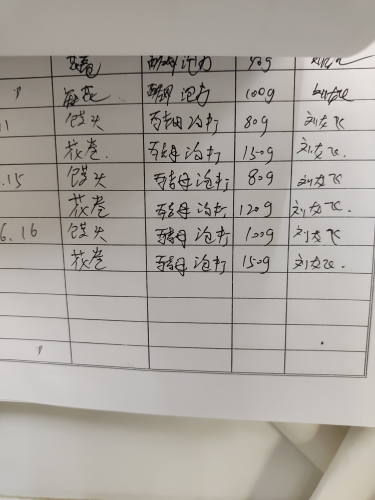 花卷 酵母 泡打 100g 刘友飞
11 馒头 酵母 泡打 80g 刘友飞
花卷 酵母 泡打 150g 刘友飞.
.15 馒头 酵母 泡打 80g 刘友飞
花卷 酵母 泡打 120g 刘友飞.
6.16 馒头 酵母 泡打 100g 刘友飞
花卷 酵母 泡打 150g 刘友飞.